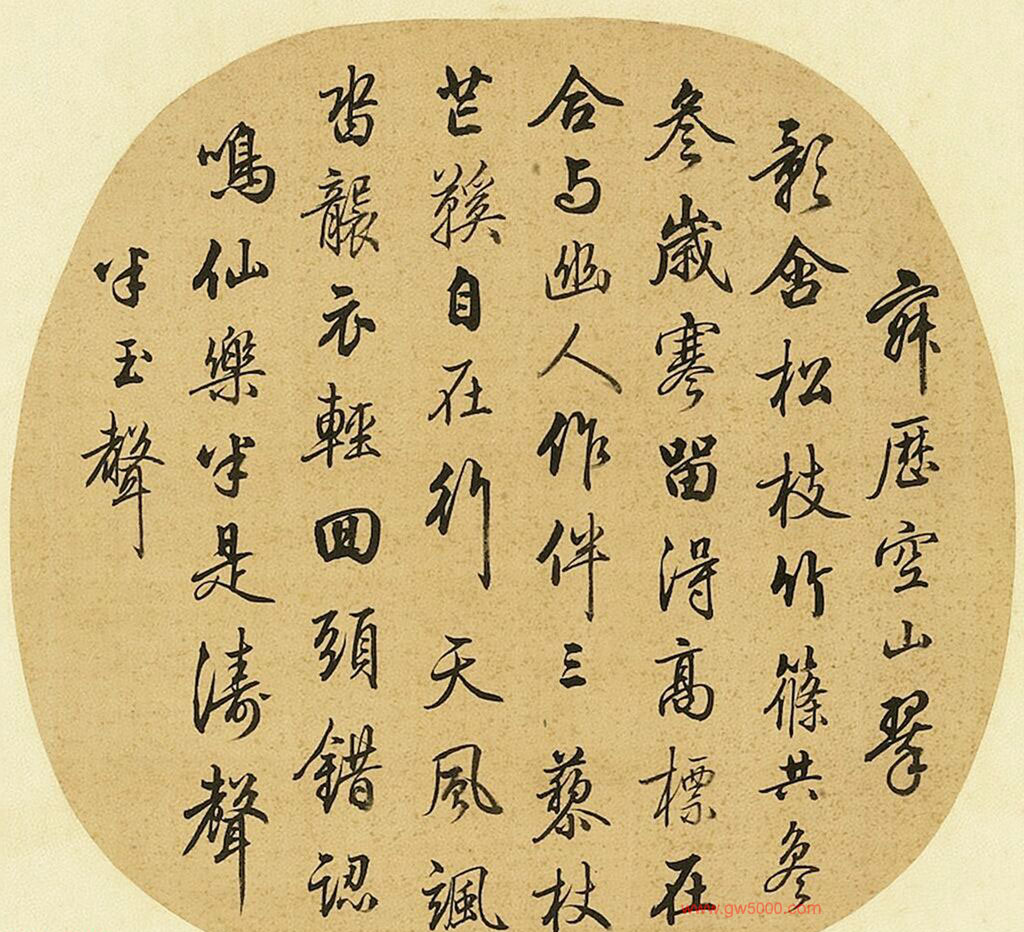 寂歷空山翠
影含松枝竹篠共參
參歲寒留得高標在
合与幽人作伴三藜杖
芒鞵自在行天風颯
沓襲衣輕回頭錯認
鳴仙樂半是濤聲
半玉聲
www.gw5000.com